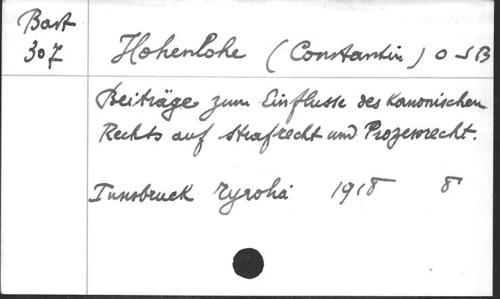 Bart
307
Hohenlohe (Constantin) O S B
Beiträge zum Einflusse des Kanonischen
Rechts auf Strafrecht und Prozessrecht.
Innsbruck Tyrolia 1918 8°